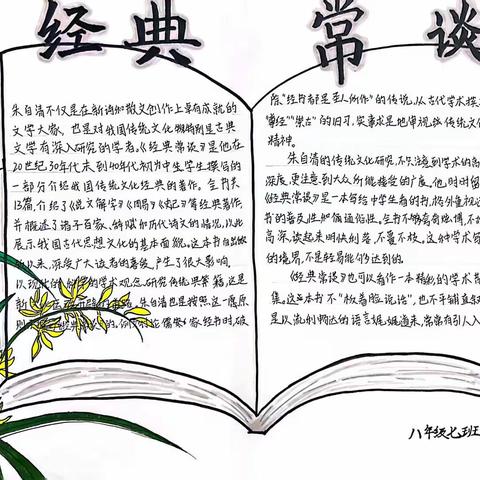 经典常谈
朱自清不仅是在新诗和散文创作上享有成就的
文学大家，也是对我国传统文化特别是古典
文学有深入研究的学者。《经典常谈》是他在
20世纪30年代末到40年代初为中生学生撰写的
一部分介绍我国传统文化经典的著作。全书共
13篇，介绍了《说文解字》《周易》《史记》等经典著作，
并概述了诸子百家、辞赋和历代诗文的情况，以此
展示我国古代思想文化的基本面貌。这本书自出版
以来，深受广大读者的喜爱，产生了很大影响
以现代的科学的学术观念研究传统典籍，这是
朱自清也是按照这一原
经书时，破
除“经书都是圣人所作”的传说，从古代学术
“尊经”“崇古”的旧习，实事求是地审视传统文
精神。
朱自清的传统文化研究，不只注意到学术的
深度，更注意到大众所能接受的广度。他时时留
《经典常谈》是一本写给中学生看的书，格外重视
书的普及性和通俗性。全书不够高
高深，读起来明快利落，不蔓不枝，这种学术
的境界，不是轻易能够达到的。
《经典常谈》也可以看作一本精彩的学术
集。这本书不“板着脸说话”，也不平铺直叙
是以流利畅达的语言娓娓道来，常常有引人入
八年级七班